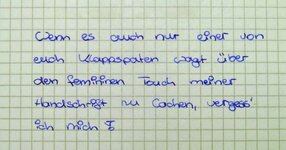 Wenn es auch nur einer von
euch Klappspaten wagt über
den femininen Touch meiner
Handschrift zu lachen, vergess'
ich mich!